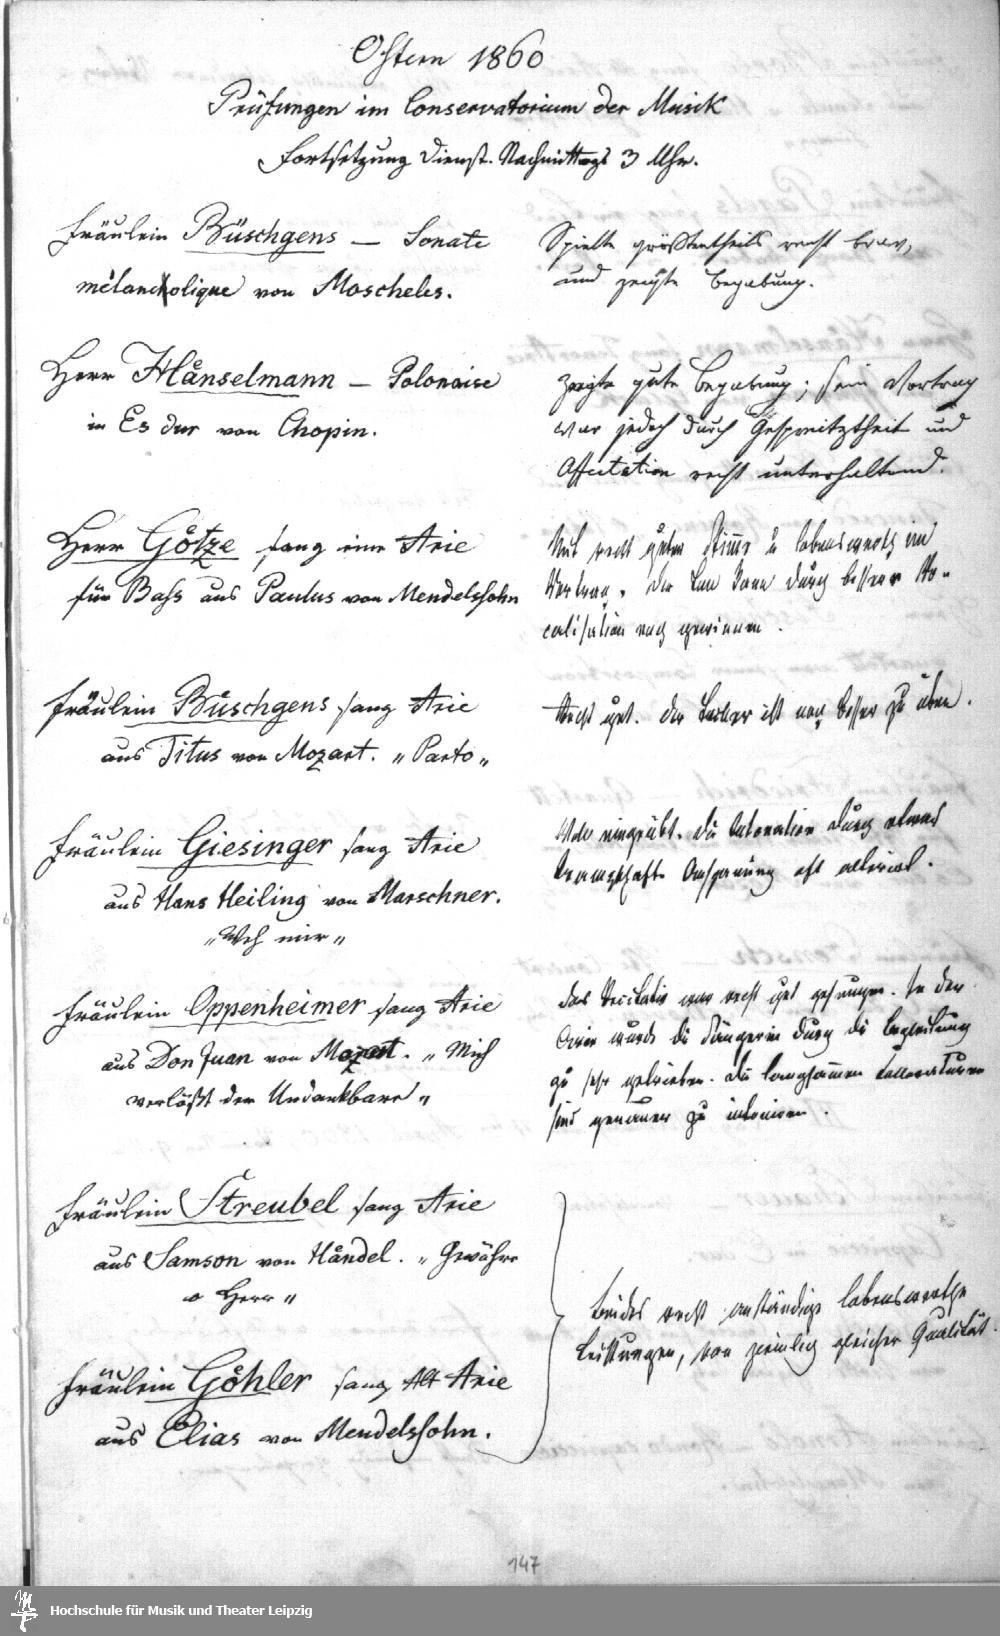 Ostern 1860
Prüfungen im Conservatorium der Musik
Fortsetzung Dienst. Nachmittags 3 Uhr.
Fräulein Büschgens — Sonate
mélancholique von Moscheles.
Spielte größtentheils recht brav,
und zeigte Begabung.
Herr Hänselmann — Polonaise
in Es dur von Chopin.
Zeigte gute Begabung; sein Vortrag
war jedoch durch Gespreiztheit und
Affectation recht unterhaltend.
Herr Götze sang eine Arie
für Bass aus Paulus von Mendelssohn
Mit recht guter Stimme u lobenswerth im
Vortrag. Der Ton kann durch bessere Vo-
calisation noch gewinnen.
Fräulein Büschgens sang Arie
aus Titus von Mozart. „Parto„
Recht gut. Der Triller ist noch besser zu üben.
Fräulein Giesinger sang Arie
aus Hans Heiling von Marschner.
„Weh mir„
Wohl eingeübt. Die Intonation durch etwas
krampfhafte Anspannung oft alterirt.
Fräulein Oppenheimer sang Arie
aus Don Juan von Mozart. „Mich
verläßt der Undankbare„
Das Recitativ war recht gut gesungen. In der
Arie wurde die Sängerin durch die Begleitung
zu sehr getrieben. Die langsamen Coloraturen
sind genauer zu intoniren.
Fräulein Streubel sang Arie
aus Samson von Händel. „Gewähre
o Herr„
Fräulein Göhler sang Alt Arie
aus Elias von Mendelssohn.
Beides recht anständige lobenswerthe
Leistungen, von ziemlich gleicher Qualität.
147
Hochschule für Musik und Theater Leipzig